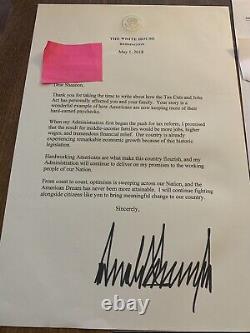 THE WHITE HOUSE
WASHINGTON
May 1, 2018
Dear Shannon,
Thank you for taking the time to write about how the Tax Cuts and Jobs
Act has personally affected you and your family. Your story is a
wonderful example of how Americans are now keeping more of their
hard-earned paychecks.
When my Administration first began the push for tax reform, I promised
that the result for middle-income families would be more jobs, higher
wages, and tremendous financial relief. Our country is already
experiencing remarkable economic growth because of this historic
legislation.
Hardworking Americans are what make this country flourish, and my
Administration will continue to deliver on my promises to the working
people of our Nation.
From coast to coast, optimism is sweeping across our Nation, and the
American Dream has never been more attainable. I will continue fighting
alongside citizens like you to bring meaningful change to our country.
Sincerely,